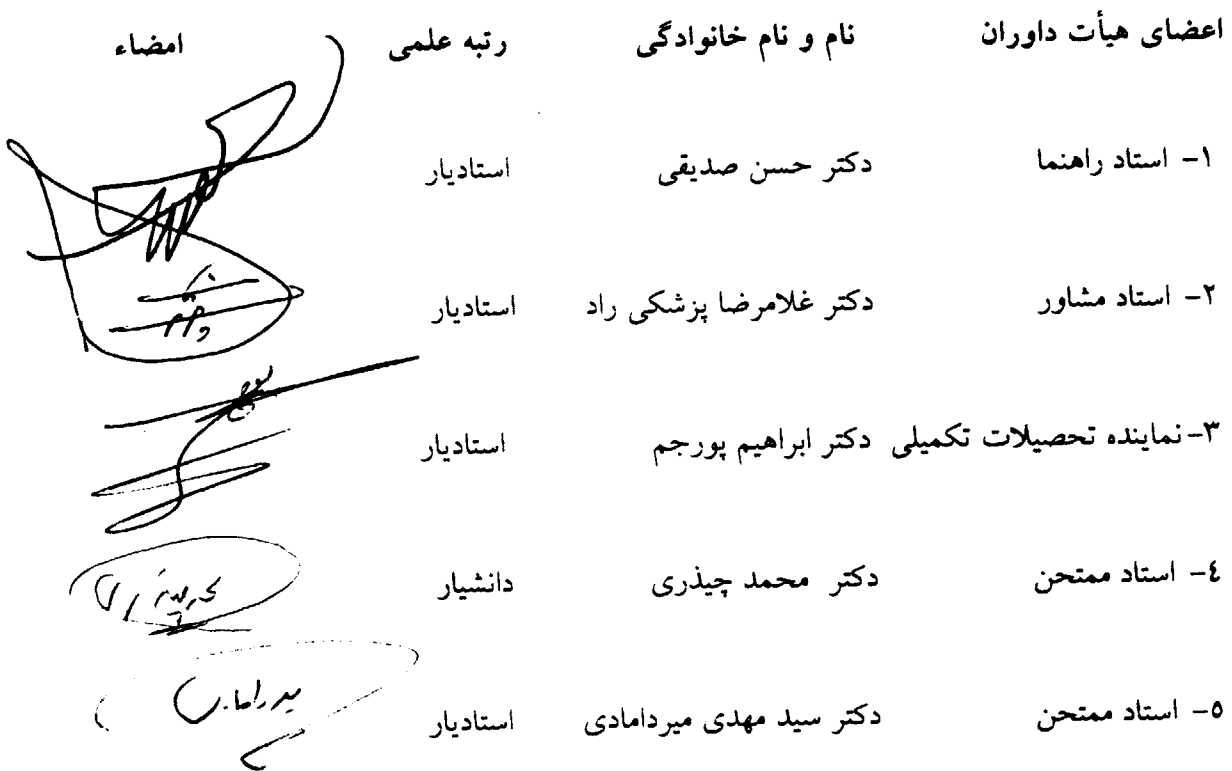 اعضای هیأت داوران نام و نام خانوادگی رتبه علمی امضاء
۱- استاد راهنما دکتر حسن صدیقی استادیار
۲- استاد مشاور دکتر غلامرضا پزشکی راد استادیار
۳-نماینده تحصیلات تکمیلی دکتر ابراهیم پورجم استادیار
٤- استاد ممتحن دکتر محمد چیذری دانشیار
۵- استاد ممتحن دکتر سید مهدی میردامادی استادیار